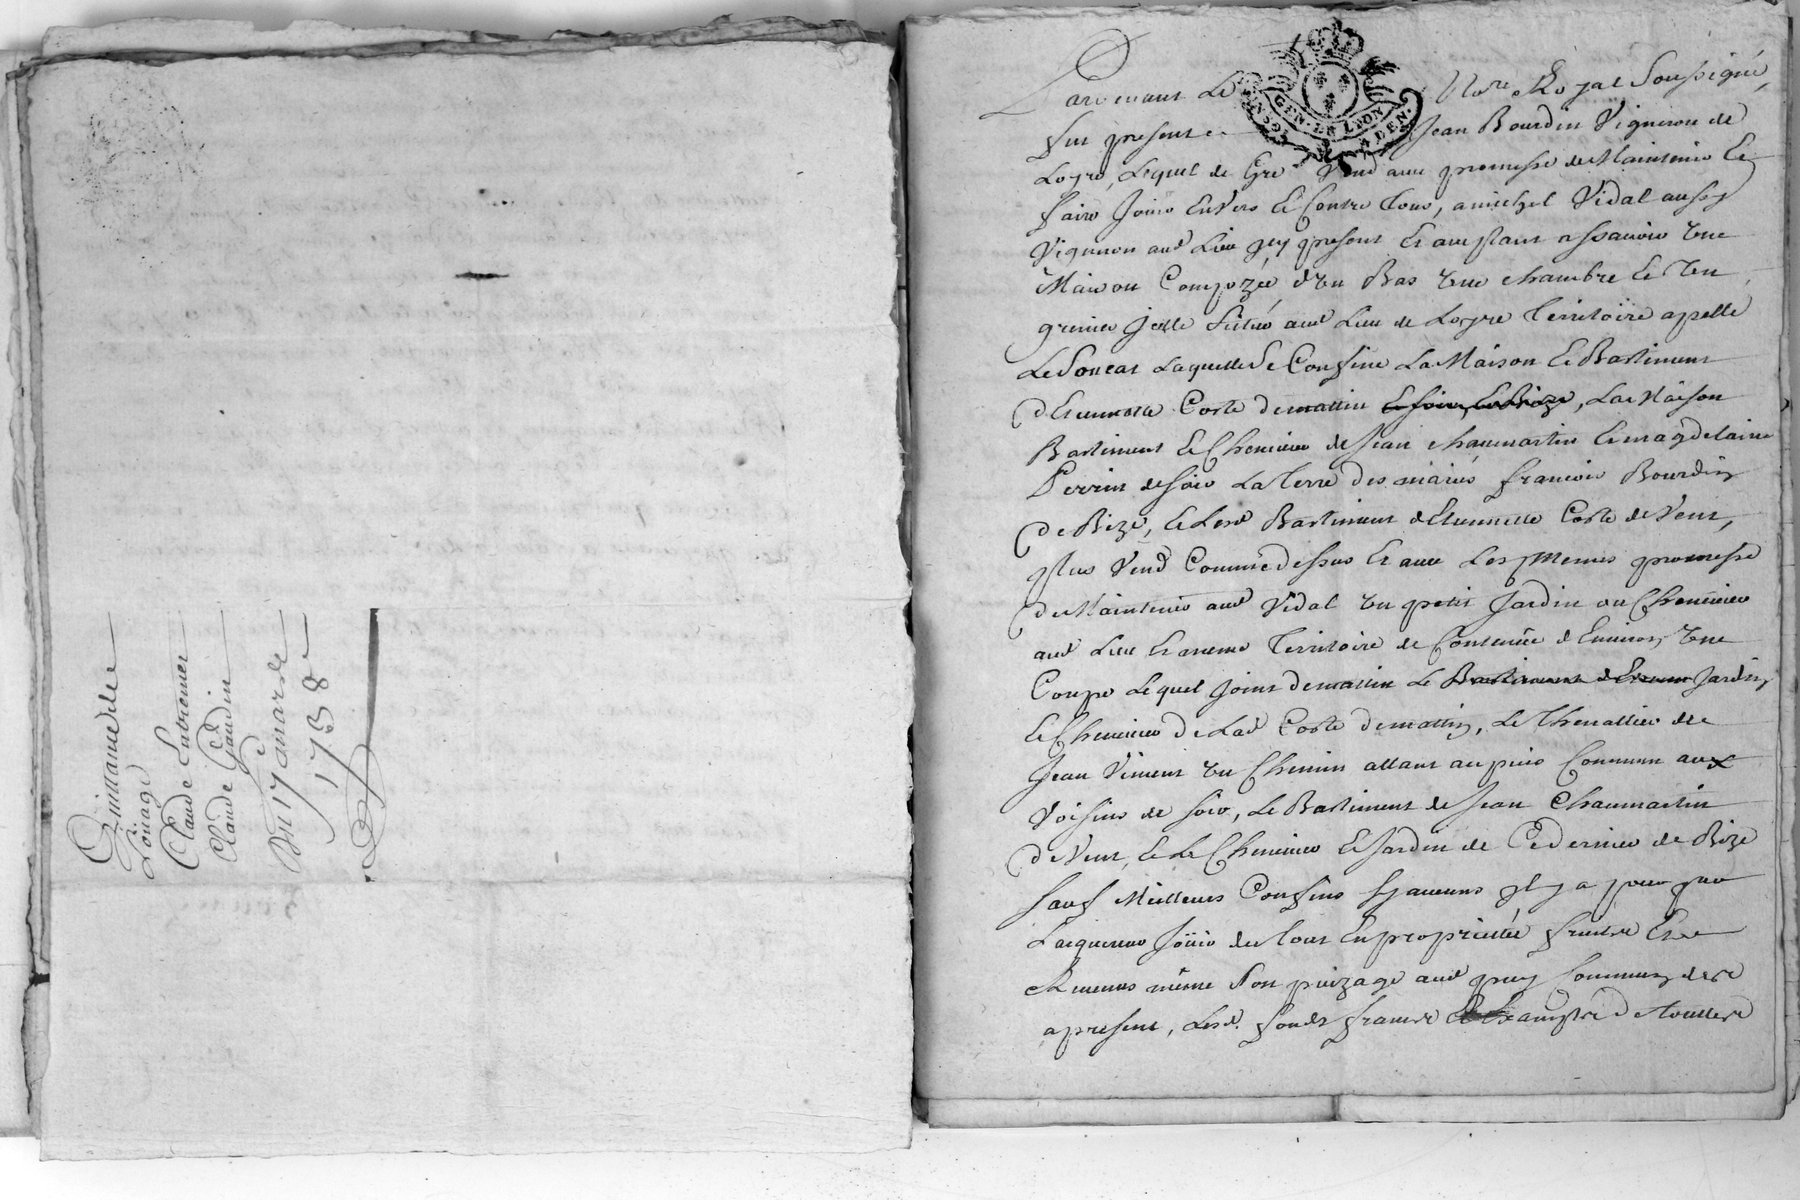 Quittance de
Loüage
Claude Lutremer
et
Claude Gaudin
Du 17e mars
1788
GEN. DE LYON
Pardevant Le Nore Royal Soussigné,
fut present Jean Bourdin Vigneron de
Loyre, Lequel de Gré Vend avec promesse de Maintenir Et
faire Joüir Envers Et Contre Tous, a michel Vidal aussy
Vigneron aud Lieu jcy present Et acceptant assavoir Une
Maison Composée d'Un Bas Une chambre Et Un
grenier jcelle Scitué aud Lieu de Loyre Territoire apellé
Le Laquelle Se Confine La Maison Et Bastiment
d'Etiennette Coste de mattin, La Maison
Bastiment Et Chenevier de Jean chaumartin Et magdelaine
Perrin de soir La Terre des mariés francois Bourdin
De Bize, Et Lesd Bastiment d'Etiennette Coste de Vent,
plus Vend Comme dessus Et avec Les Memes promesse
De Maintenir aud Vidal Un petit Jardin ou Chenevier
aud Lieu Et meme Territoire de Contenüe d'Environ Une
Coupe Lequel Joint de mattin Le Bastiment Jardin
Et Chenevier De Lad Coste de mattin, Le Chenevier de
Jean Viment Un Chemin allant au puis Commun aux
Voisins de soir, Le Bastiment de Jean Chaumartin
De Vent, Et Le Chenevier Et Jardin de Ce dernier de Bize
Sauf Meilleurs Confins Sy aucuns jl y a pour par
L'acquereur Joüir du tout En propriettée fruits Et
Revenus même Son puizage aud puy Commun des
a present, Lesd. fonds francs de toutes